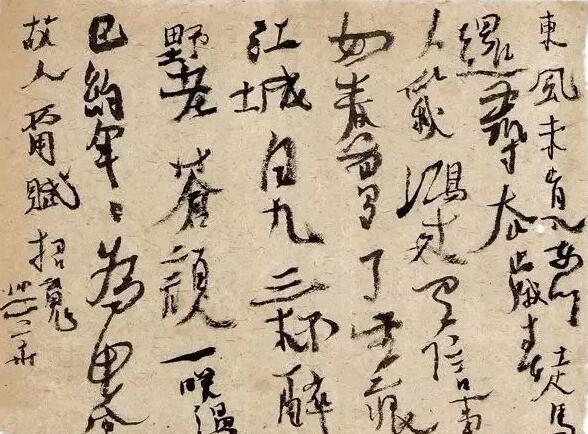 東風未肯入東門走馬
還尋去歲村
人似鴻來有信事
如春夢了無痕
江城白九三杯醉
野老蒼顏一笑溫
已約年々為此會
故人不用賦招魂